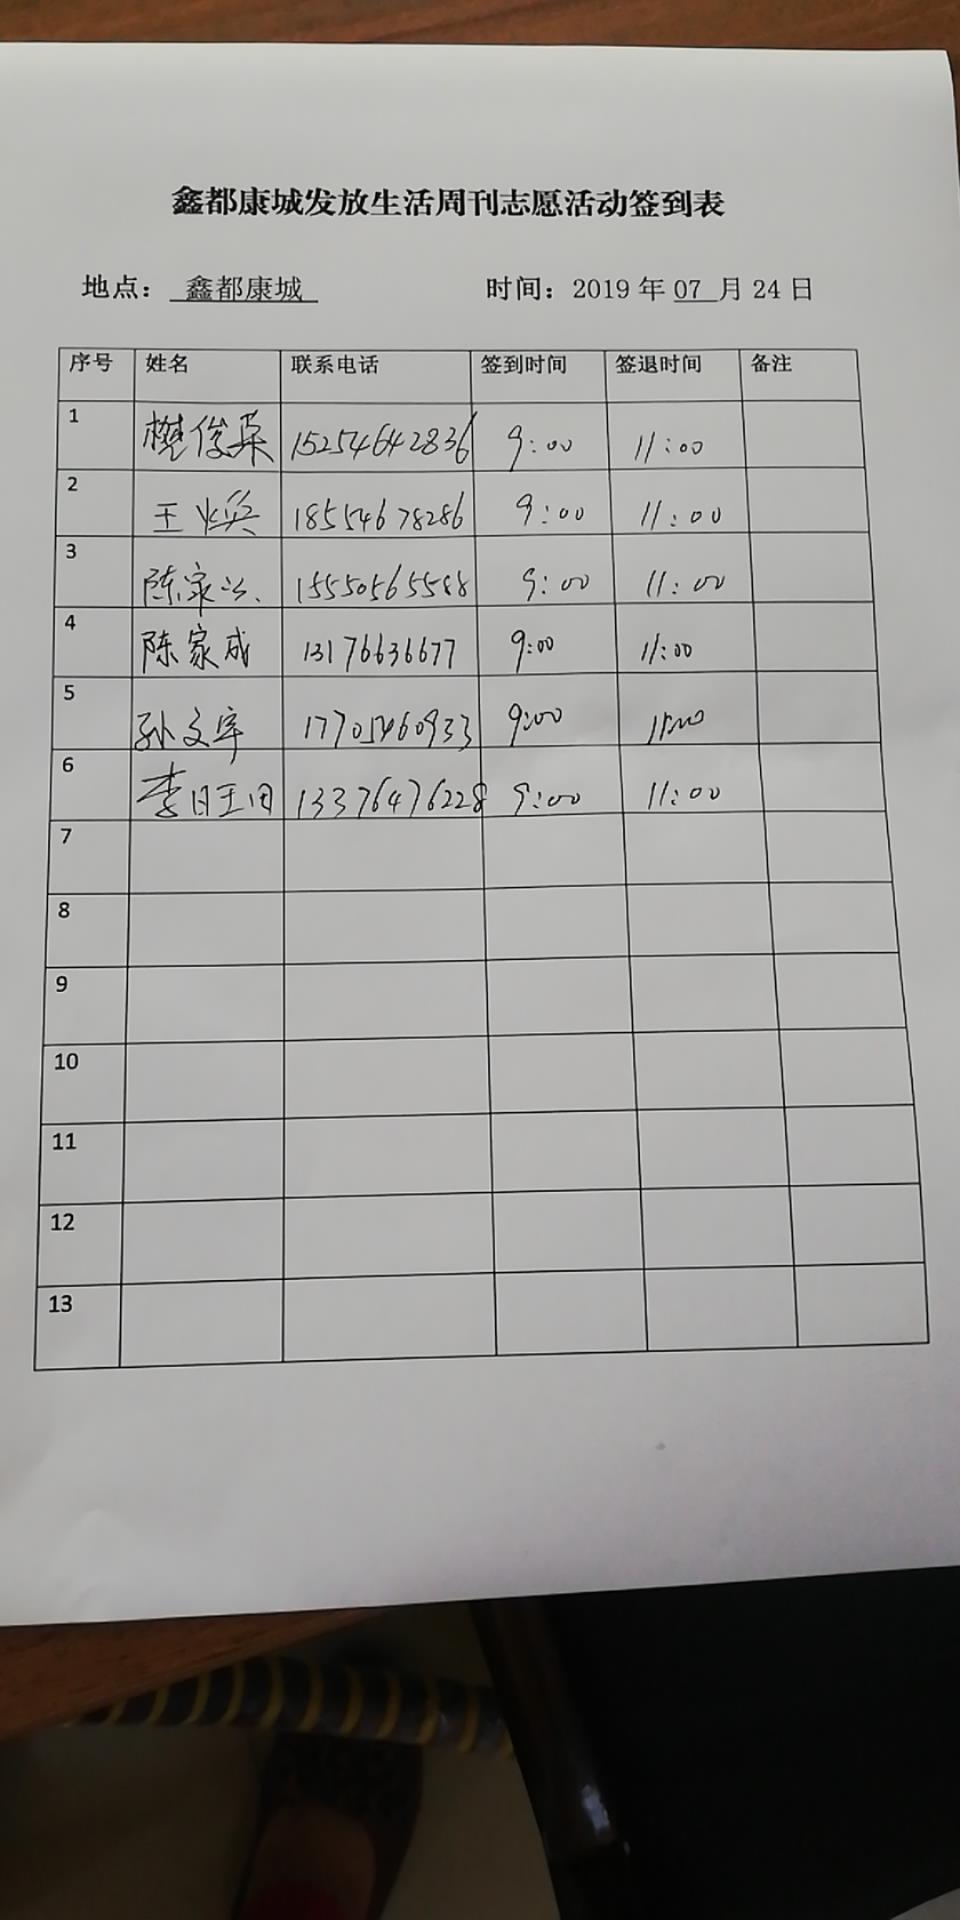 鑫都康城发放生活周刊志愿活动签到表
地点： 鑫都康城 时间：2019 年 07 月 24 日
序号 姓名 联系电话 签到时间 签退时间 备注
1 樊俊 15254642836 9:00 11:00
2 王焕 18554678286 9:00 11:00
3 陈家兴 15550565588 9:00 11:00
4 陈家成 13176636677 9:00 11:00
5 孙文宇 17705460933 9:00 11:00
6 李日王田 13376476228 9:00 11:00
7
8
9
10
11
12
13